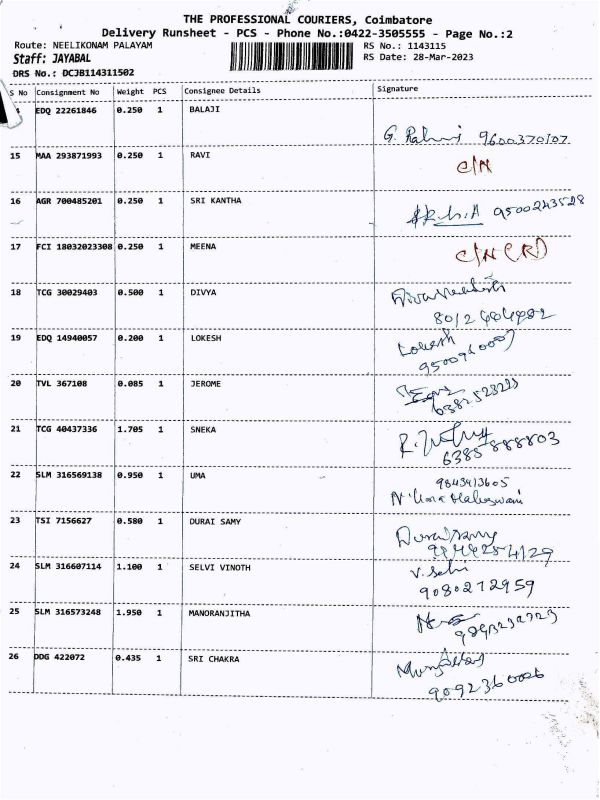 THE PROFESSIONAL COURIERS, Coimbatore
Delivery Runsheet - PCS - Phone No.:0422-3505555 - Page No.:2
Route: NEELIKONAM PALAYAM RS No.: 1143115
Staff: JAYABAL RS Date: 28-Mar-2023
DRS No.: DCJB114311502
S No Consignment No Weight PCS Consignee Details Signature
4 EDQ 22261846 0.250 1 BALAJI
9600370107
15 MAA 293871993 0.250 1 RAVI
C/N
16 AGR 700485201 0.250 1 SRI KANTHA
9500243528
17 FCI 18032023308 0.250 1 MEENA
C/N (RD)
18 TCG 30029403 0.500 1 DIVYA
19 EDQ 14940057 0.200 1 LOKESH
Lokesh
20 TVL 367108 0.085 1 JEROME
21 TCG 40437336 1.705 1 SNEKA
6385888803
22 SLM 316569138 0.950 1 UMA
9843413605
N Uma Maheswari
23 TSI 7156627 0.580 1 DURAI SAMY
Duraisamy
24 SLM 316607114 1.100 1 SELVI VINOTH
V. Selvi
9080272959
25 SLM 316573248 1.950 1 MANORANJITHA
26 DDG 422072 0.435 1 SRI CHAKRA
9092360026